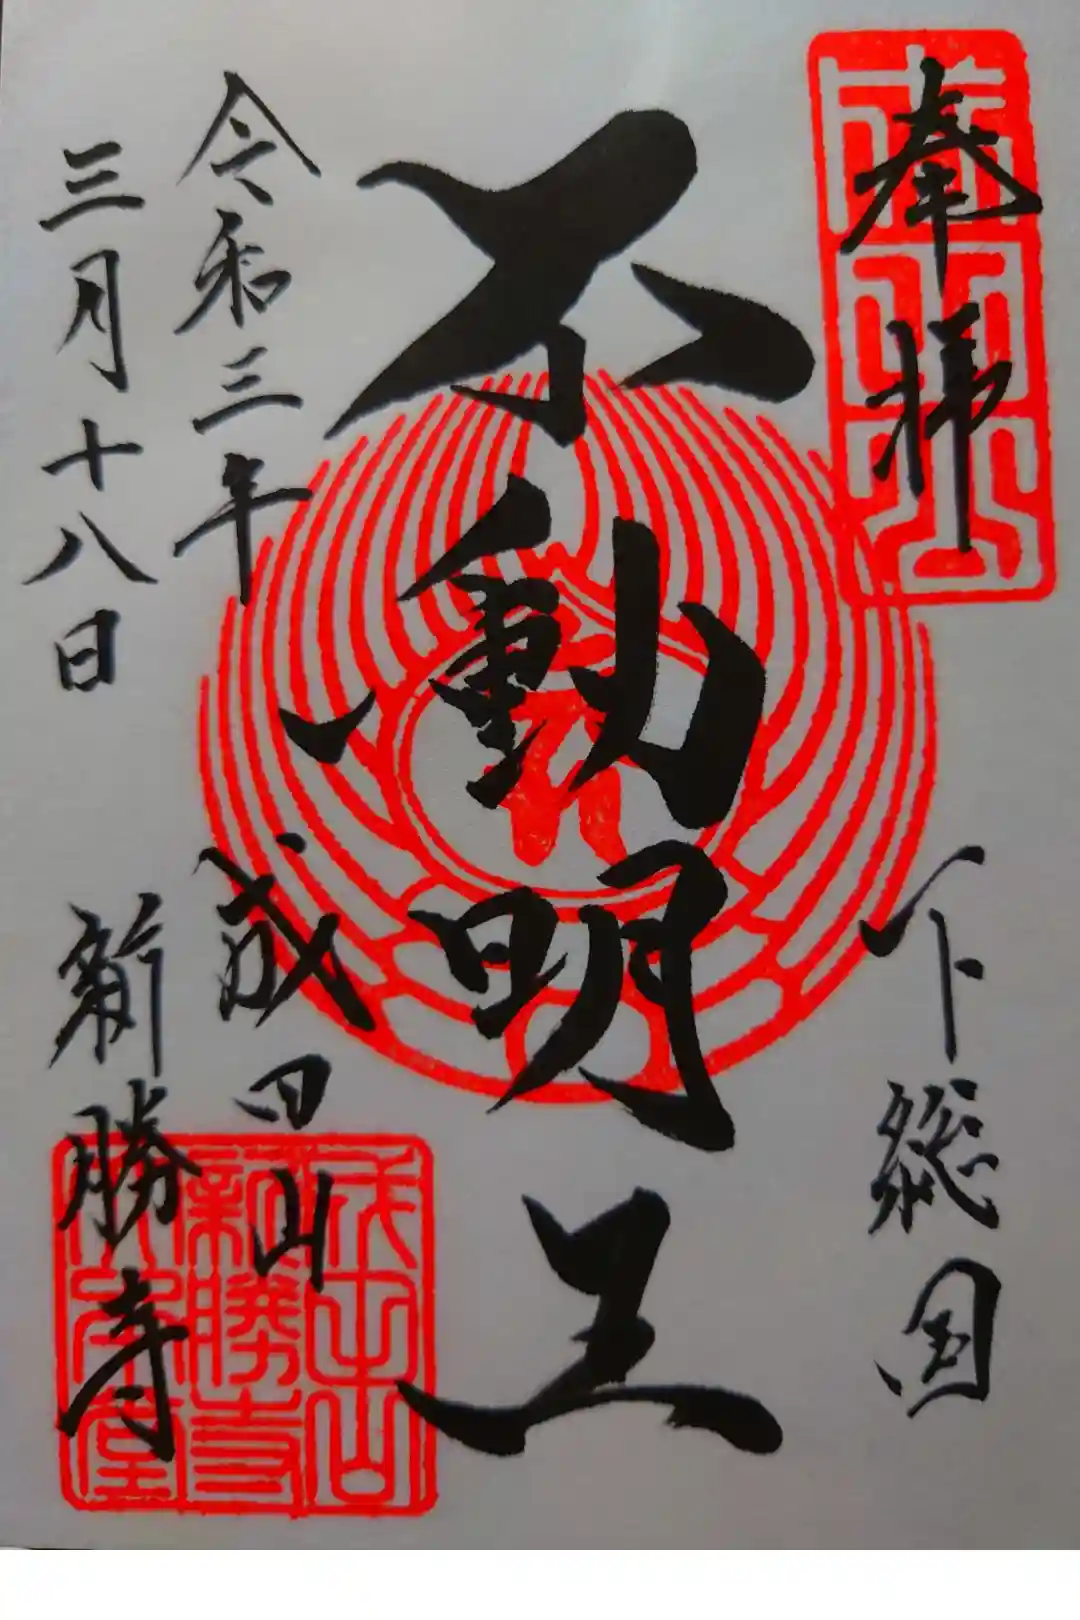 奉拝
下総国
不動明王
令和三年
三月十八日
成田山
新勝寺
成田山
新勝寺